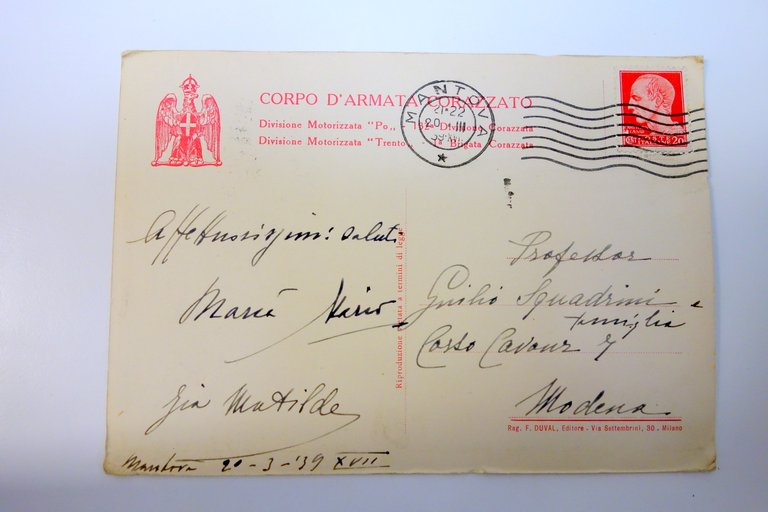 CORPO D'ARMATA CORAZZATO
Divisione Motorizzata "Po„ - 132ª Divisione Corazzata
Divisione Motorizzata "Trento - Iª Brigata Corazzata
MANTOVA
21-22
20 III
39
20
Affettuosissimi saluti
Maria Mario
Zia Matilde
Mantova 20-3-'39 XVII
Riproduzione vietata a termini di legge
Professor
Giulio Squadrini e
famiglia
Corso Cavour 7
Modena
Rag. F. DUVAL, Editore - Via Settembrini, 30 - Milano